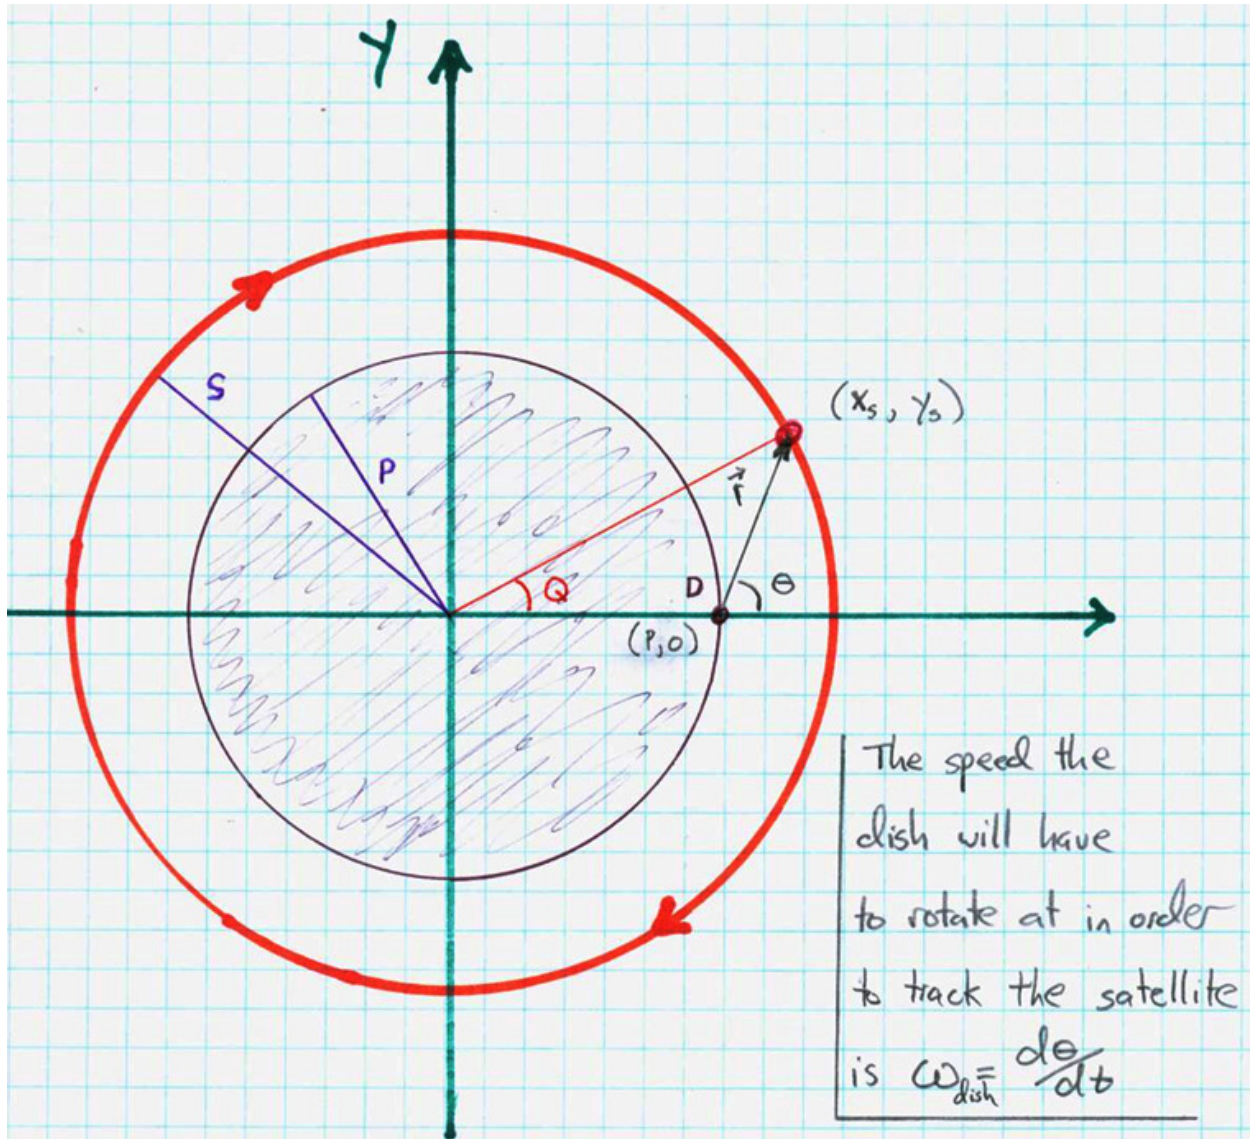 Y
S
(Xs, Ys)
P
r
Q
D
θ
(P,0)
The speed the
dish will have
to rotate at in order
to track the satellite
is ω_dish = dθ/dt